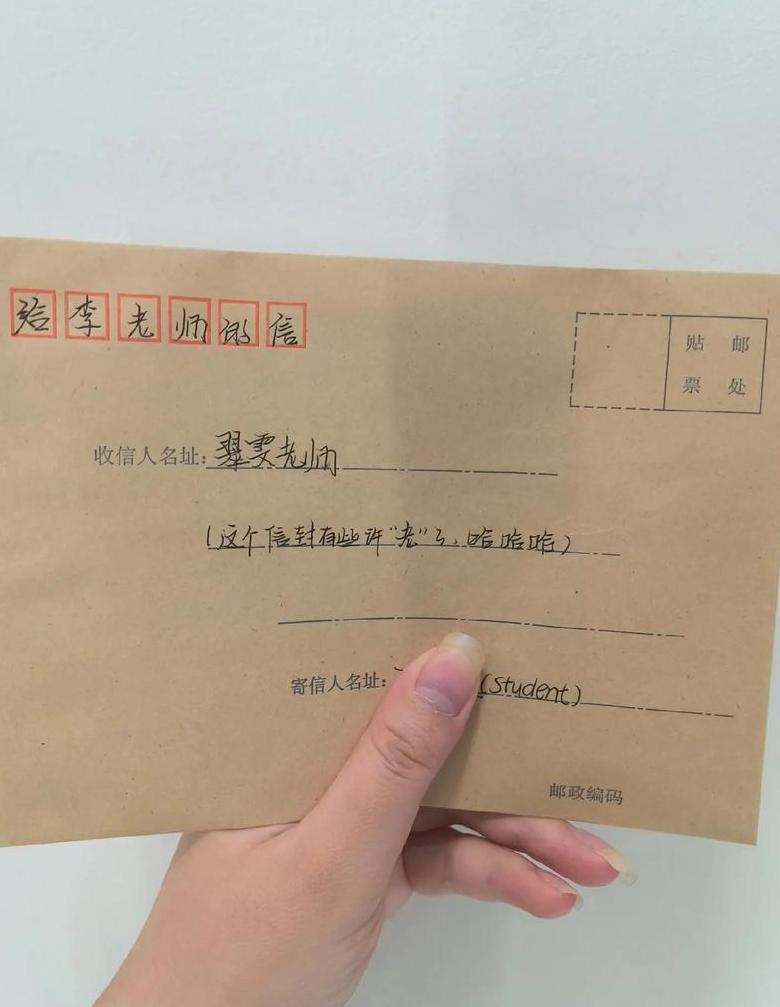 给李老师的信
贴 邮
票 处
收信人名址:翠雯老师
(这个信封有些许“老”了,哈哈哈)
寄信人名址: (Student)
邮政编码